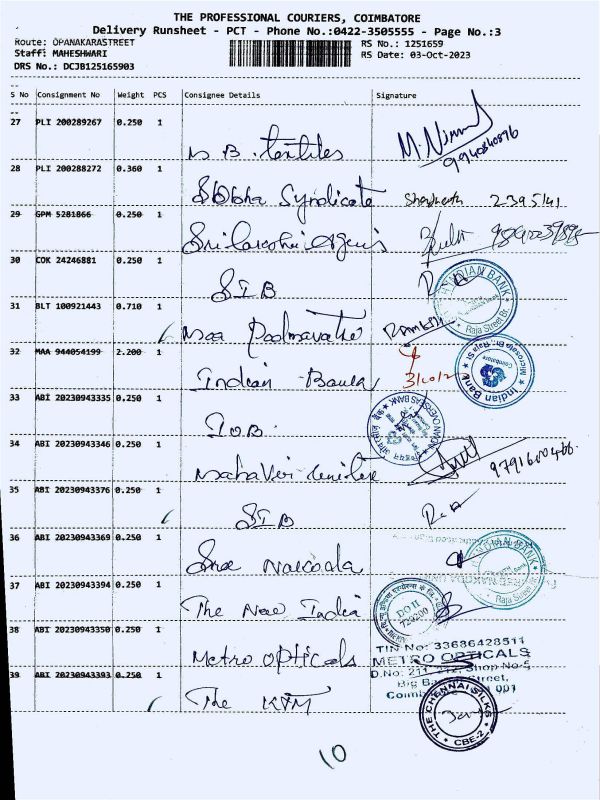 THE PROFESSIONAL COURIERS, COIMBATORE
Delivery Runsheet - PCT - Phone No.:0422-3505555 - Page No.:3
Route: OPANAKARASTREET RS No.: 1251659
Staff: MAHESHWARI RS Date: 03-Oct-2023
DRS No.: DCJB125165903
S No Consignment No Weight PCS Consignee Details Signature
27 PLI 200289267 0.250 1
M B. textiles 9940840896
28 PLI 200288272 0.360 1
Shobha Syndicate 2395141
29 GPM 5281866 0.250 1
30 COK 24246881 0.250 1
SIB
INDIAN BANK
Raja Street Br.
31 BLT 100921443 0.710 1
Maa Padmavathi
32 MAA 944054199 2.200 1
Indian Bank
Indian Bank
33 ABI 20230943335 0.250 1
IOB
OVERSEAS BANK
34 ABI 20230943346 0.250 1
Mahaveer 9791600466
35 ABI 20230943376 0.250 1
SIB R.A
36 ABI 20230943369 0.250 1
Shree Nakoda
INDIAN BANK
Raja Street Br.
37 ABI 20230943394 0.250 1
The New India
DO II
729200
38 ABI 20230943350 0.250 1
Metro opticals
TIN No: 33686428511
METRO OPTICALS
D.No: 211 Shop No-5
Big Street,
39 ABI 20230943393 0.250 1
The KTM
THE CHENNAI SILKS
CBE-2
10